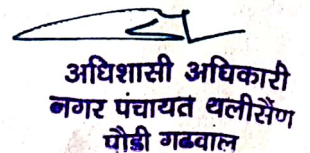 अधिशासी अधिकारी
नगर पंचायत थलीसैंण
पौडी गढवाल